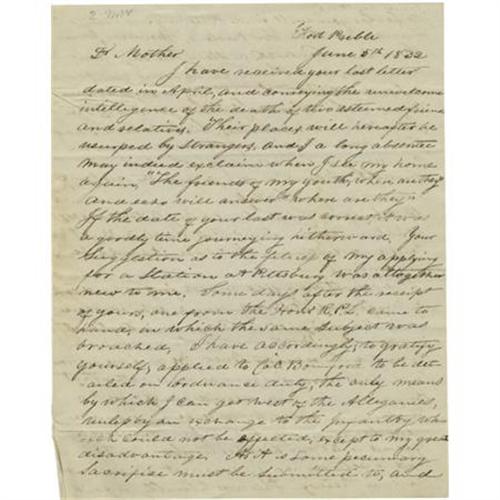 Fort Preble
June 5th 1832
Dr Mother
I have received your last letter
dated in April, and conveying the unwelcome
intelligence of the death of two esteemed friends
and relatives. Their places will hereafter be
usurped by strangers, and I a long absentee
may indeed exclaim when I see my home
again, "The friends of my youth, where are they"
and echo will answer "where are they"
If the date of your last was correct, it was
a goodly time journeying hitherward. Your
suggestion as to the of my applying
for a Station at Pittsburg was altogether
new to me. Some days after the receipt
of yours, one from the Honl came to
hand, in which the same subject was
broached. I have accordingly, to gratify
yourself, applied to Col. Bomford to be det
ailed on Ordnance duty, the only means
by which I can get west of the Alleganies,
unless by an exchange to the Infantry wh
ich could not be effected, except to my great
disadvantage. As it is some pecuniary
sacrifice must be submitted to, and